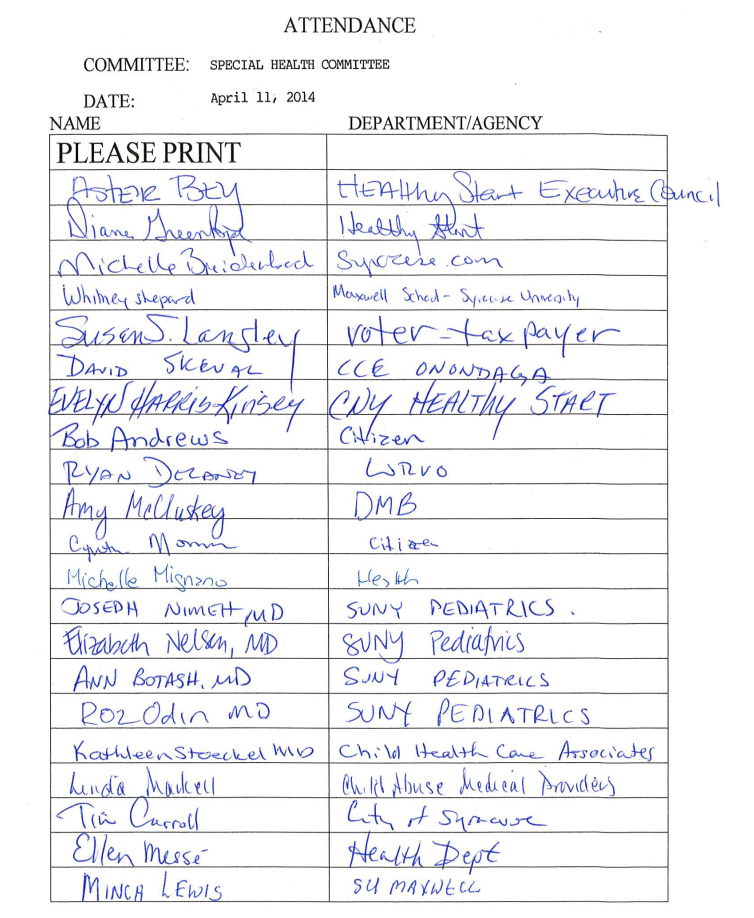 ATTENDANCE
COMMITTEE: SPECIAL HEALTH COMMITTEE
DATE: April 11, 2014
NAME DEPARTMENT/AGENCY
PLEASE PRINT
ASTER BEY HEAltHy Start Executive Council
Diane Healthy Start
Michelle Breidenbach Syracuse.com
Whitney Shepard Maxwell School - Syracuse University
Susan S. Langley voter - tax payer
DAVID SKEVAL CCE ONONDAGA
EVELYN HARRIS-Kinsey CNY HEALTHY START
Bob Andrews Citizen
RYAN DELANEY WRVO
Amy McCluskey DMB
Citizen
Michelle Mignano Health
JOSEPH NIMEH, MD SUNY PEDIATRICS.
Elizabeth Nelsen, MD SUNY Pediatrics
ANN BOTASH, MD SUNY PEDIATRICS
ROZ Odin MD SUNY PEDIATRICS
Kathleen Stoeckel MD Child Health Care Associates
Linda Child Abuse Medical Providers
Tim Carroll City of Syracuse
Ellen Messé Health Dept
MINCH LEWIS SU MAXWELL